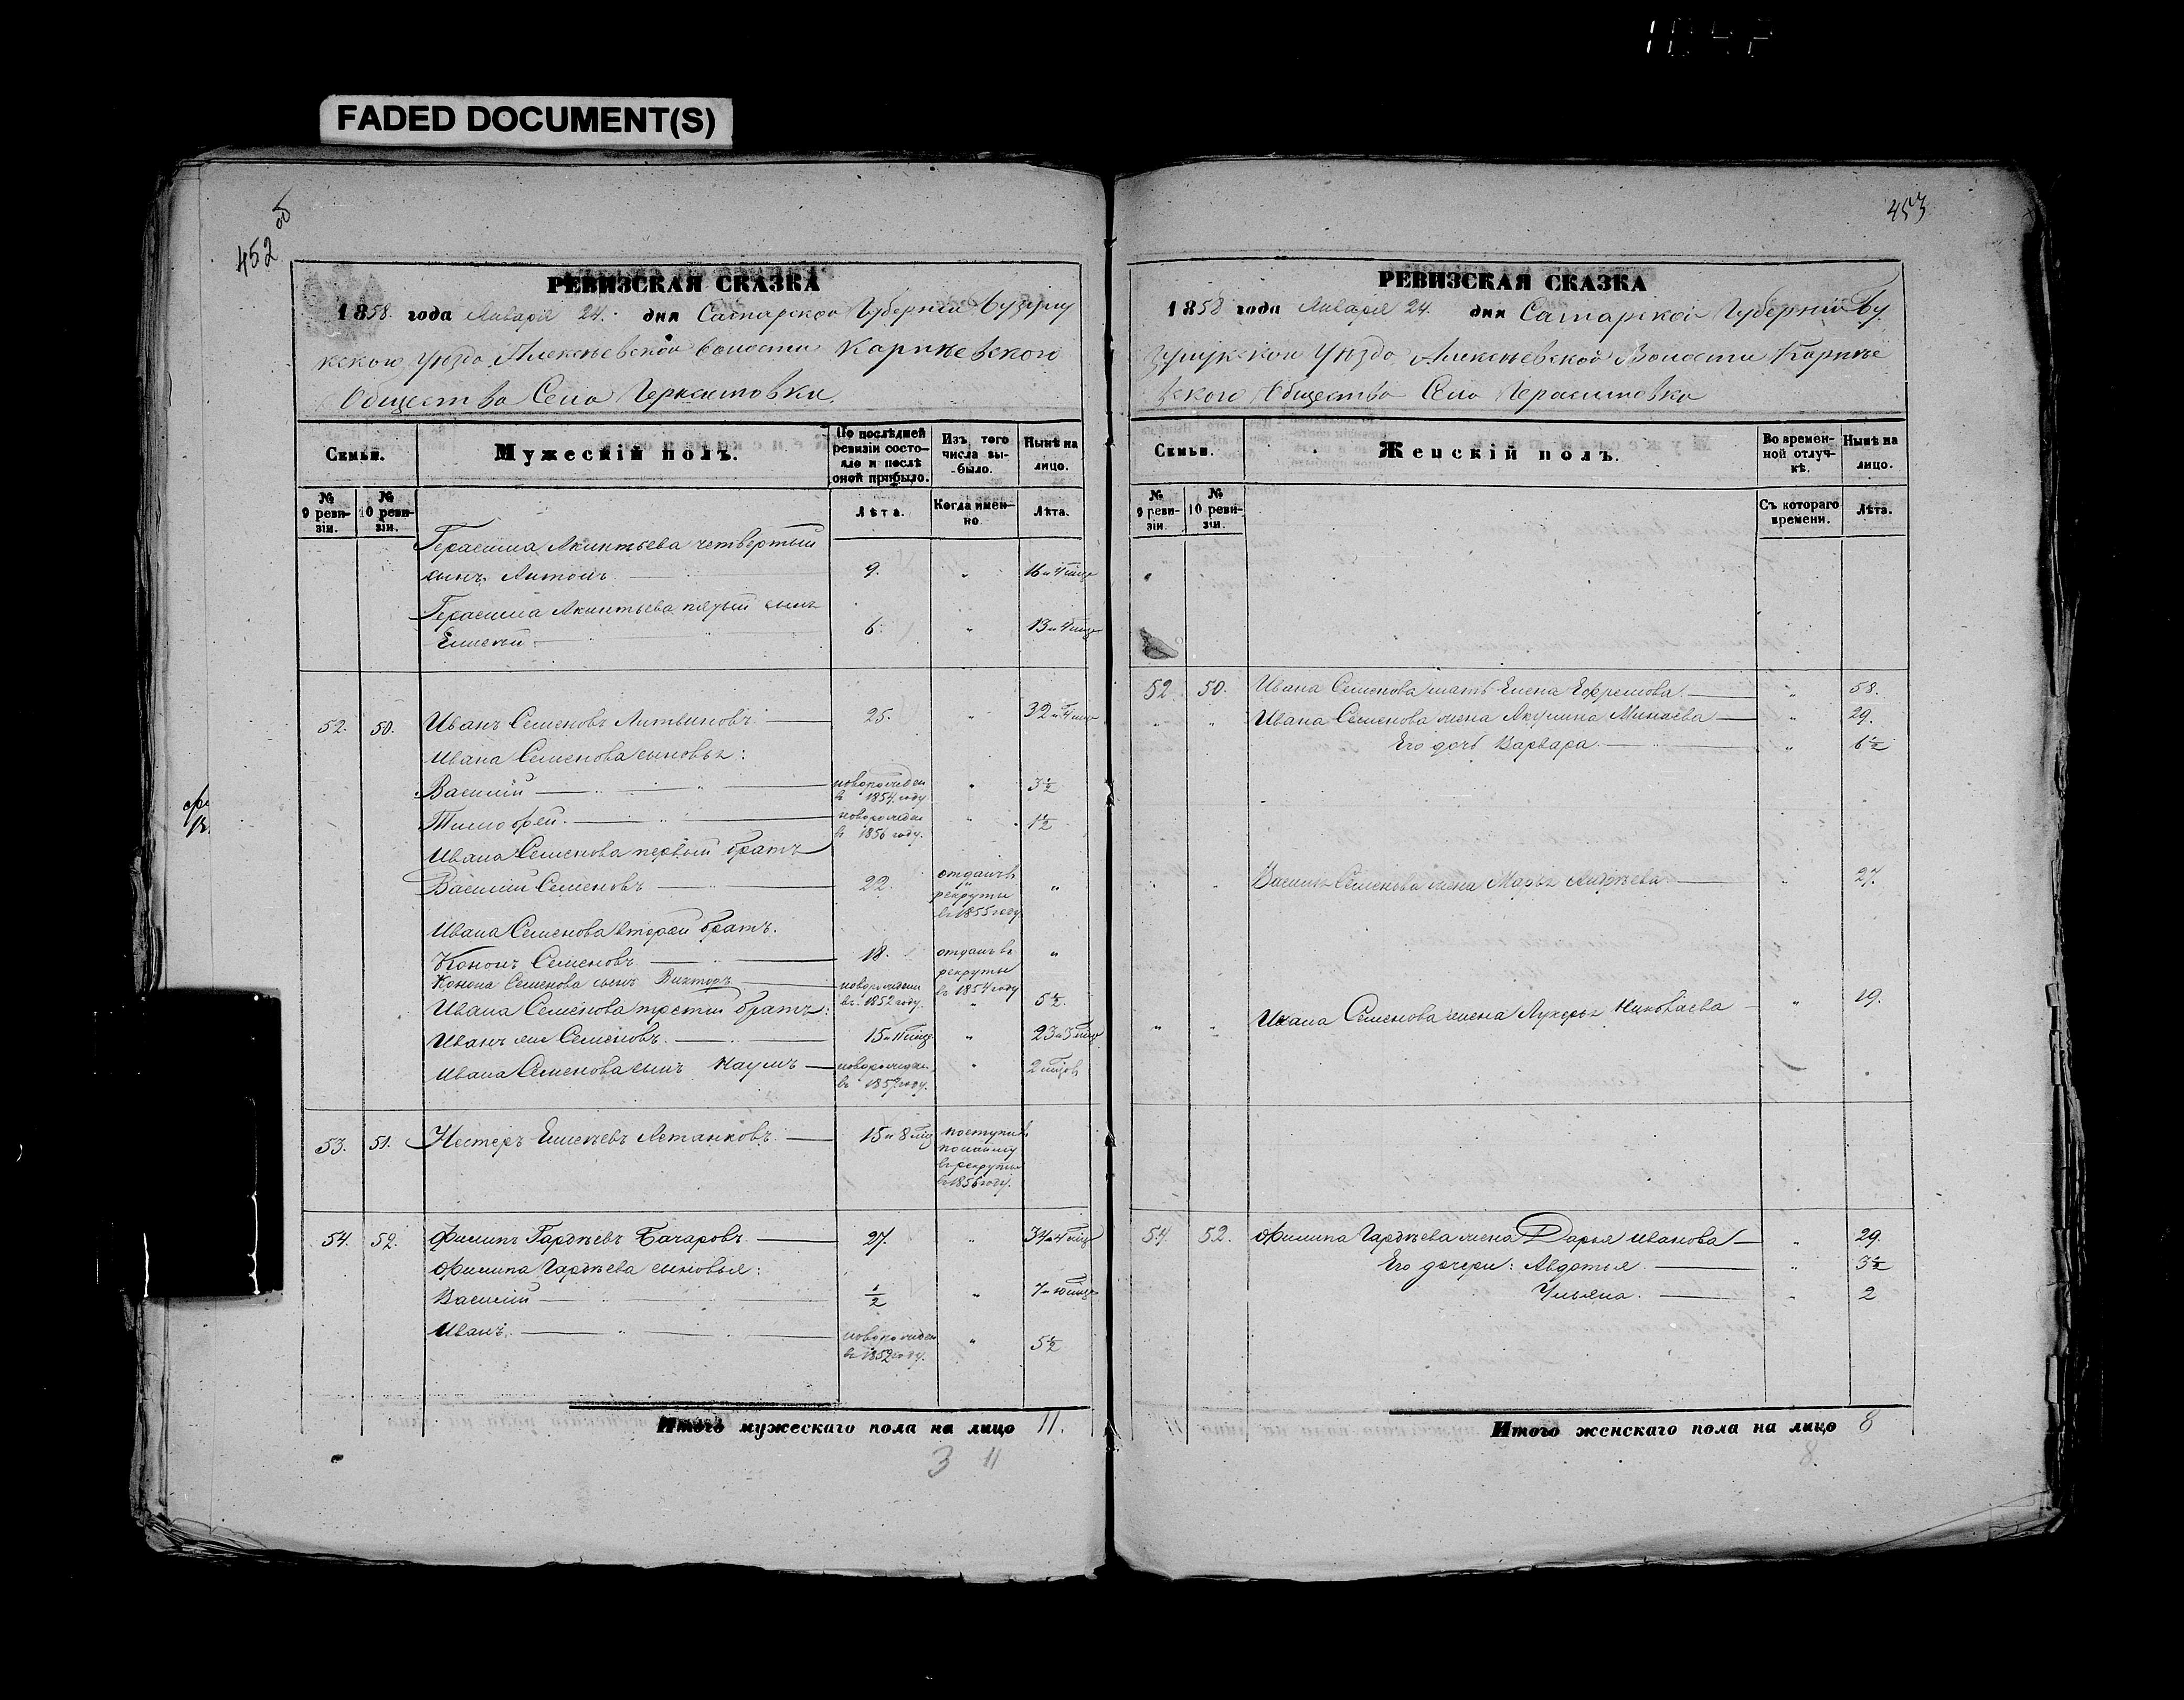 FADED DOCUMENT(S)
452 об
РЕВИЗСКАЯ СКАЗКА
1858. года Января 24. дня Самарской Губернии Бузулу
кского уѣзда Алексѣевской волости Карпѣевского
Общества Села Герасимовки.
Семьи.
Мужескій полъ.
По послѣдней ревизіи состояло и послѣ оной прибыло.
Изъ того числа выбыло.
Нынѣ на лицо.
№ 9 ревизіи.
№ 10 ревизіи.
Лѣта.
Когда именно
Лѣта.
Герасима Акинтьева четвертый
сынъ Антонъ 9. " 16 и 4 мца
Герасима Акинтьева пятый сынъ
Елисѣй 6. " 13 и 4 мца
52. 50. Иванъ Семеновъ Литвиновъ 25. " 32 и 4 мца
Ивана Семенова сыновья:
Василий новорожден въ 1854 году " 3½
Тимофей новорожден въ 1856 году. " 1½
Ивана Семенова первый братъ
Василий Семеновъ 22. отданъ въ рекруты въ 1855 году "
Ивана Семенова второй братъ.
Кононъ Семеновъ 18. отданъ въ рекруты въ 1854 году "
Конона Семенова сынъ Викторъ новорожден въ 1852 году. " 5½.
Ивана Семенова третий братъ:
Иванъ же Семеновъ. 15 и 11 мце " 23 и 3 мца
Ивана Семенова сынъ Наумъ новорожден въ 1857 году. " 2 мцов
53. 51. Нестеръ Елисѣевъ Астанковъ 15 и 8 мц поступилъ по найму въ рекруты въ 1856 году.
54. 52. Филипъ Гордѣевъ Бачаровъ 27. " 34 и 4 мца
Филипа Гордѣева сыновья:
Василий ½ " 7 и 10 мце
Иванъ новорожден въ 1852 году. " 5½
Итого мужескаго пола на лицо 11.
3 11
453
РЕВИЗСКАЯ СКАЗКА
1858 года Января 24. дня Самарской Губернии Бу
зулукскаго Уѣзда Алексѣевской Волости Карпѣе
вского Общества Села Герасимовка
Семьи.
Женскій полъ.
Во временной отлучкѣ.
Нынѣ на лицо.
№ 9 ревизіи.
№ 10 ревизіи.
Съ котораго времени.
Лѣта.
52 50. Ивана Семенова мать Елена Ефремова " 58.
" " Ивана Семенова жена Акулина Минаева " 29.
Его дочь Варвара " 6½
" " Василья Семенова жена Марья Андрѣева " 27.
" " Ивана Семенова жена Лукерья Николаева " 19.
54 52. Филипа Гордѣева жена Дарья Иванова " 29.
Его дочери: Авдотья " 3½
Ульяна. " 2
Итого женскаго пола на лицо 8
8.